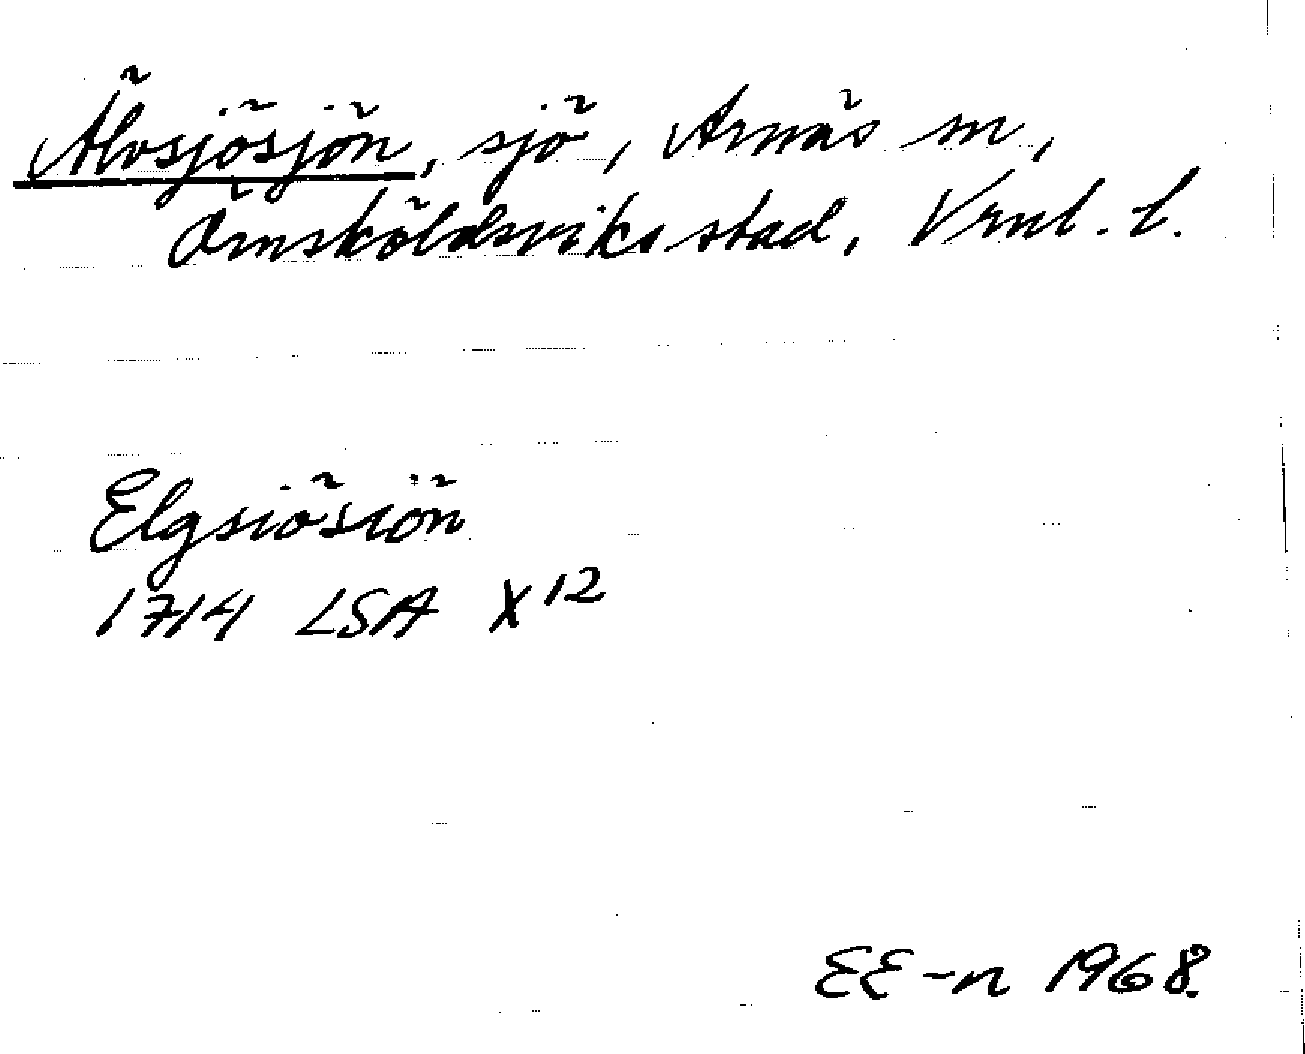 Älvsjösjön, sjö, Arnäs sn,
Örnsköldsviks stad, Vrnl. l.
Elgsiösiön
1714 LSA X12
EE-n 1968.